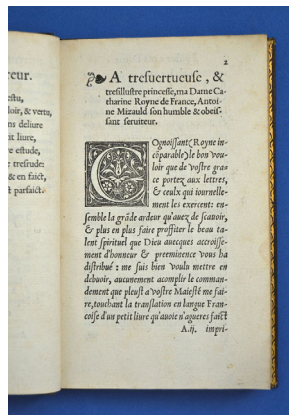 reur.
estu,
loir, & vertu,
ns deliure
it liure,
e estude,
tresrude:
& en faict,
t parfaict.
2
A tresuertueuse, &
tresillustre princesse, ma Dame Ca-
tharine Royne de France, Antoi-
ne Mizauld son humble & obeis-
sant seruiteur.
COgnoissant (Royne in-
cōparable) le bon vou-
loir que de vostre gra-
ce portez aux lettres,
& ceulx qui iournelle-
ment les exercent: en-
semble la grāde ardeur qu'auez de scauoir,
& plus en plus faire proffiter le beau ta-
lent spirituel que Dieu auecques accroisse-
ment d'honneur & preeminence vous ha
distribué: me suis bien voulu mettre en
debuoir, aucunement acomplir le comman-
dement que pleust a vostre Maiesté me fai-
re, touchant la translation en langue Fran-
coise d'un petit liure qu'auoie n'agueres faict
A.ij. impri-